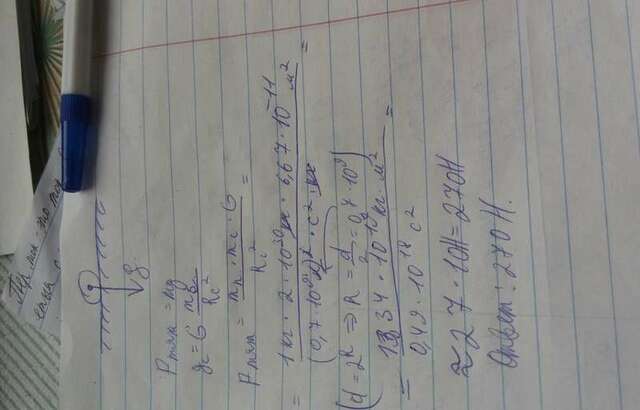 g
Pтяж = mg
gc = G mc/Rc²
Pтяж = mп · mc · G / Rc² =
= 1 кг · 2 · 10³⁰ кг · 6,67 · 10⁻¹¹ м² / (0,7 · 10⁹)² · с² · кг =
(d = 2R ⇒ R = d/2 = 0,7 · 10⁹)
= 13,34 · 10¹⁹ кг · м² / 0,49 · 10¹⁸ с² =
≈ 27 · 10 Н = 270 Н
Ответ: 270 Н.